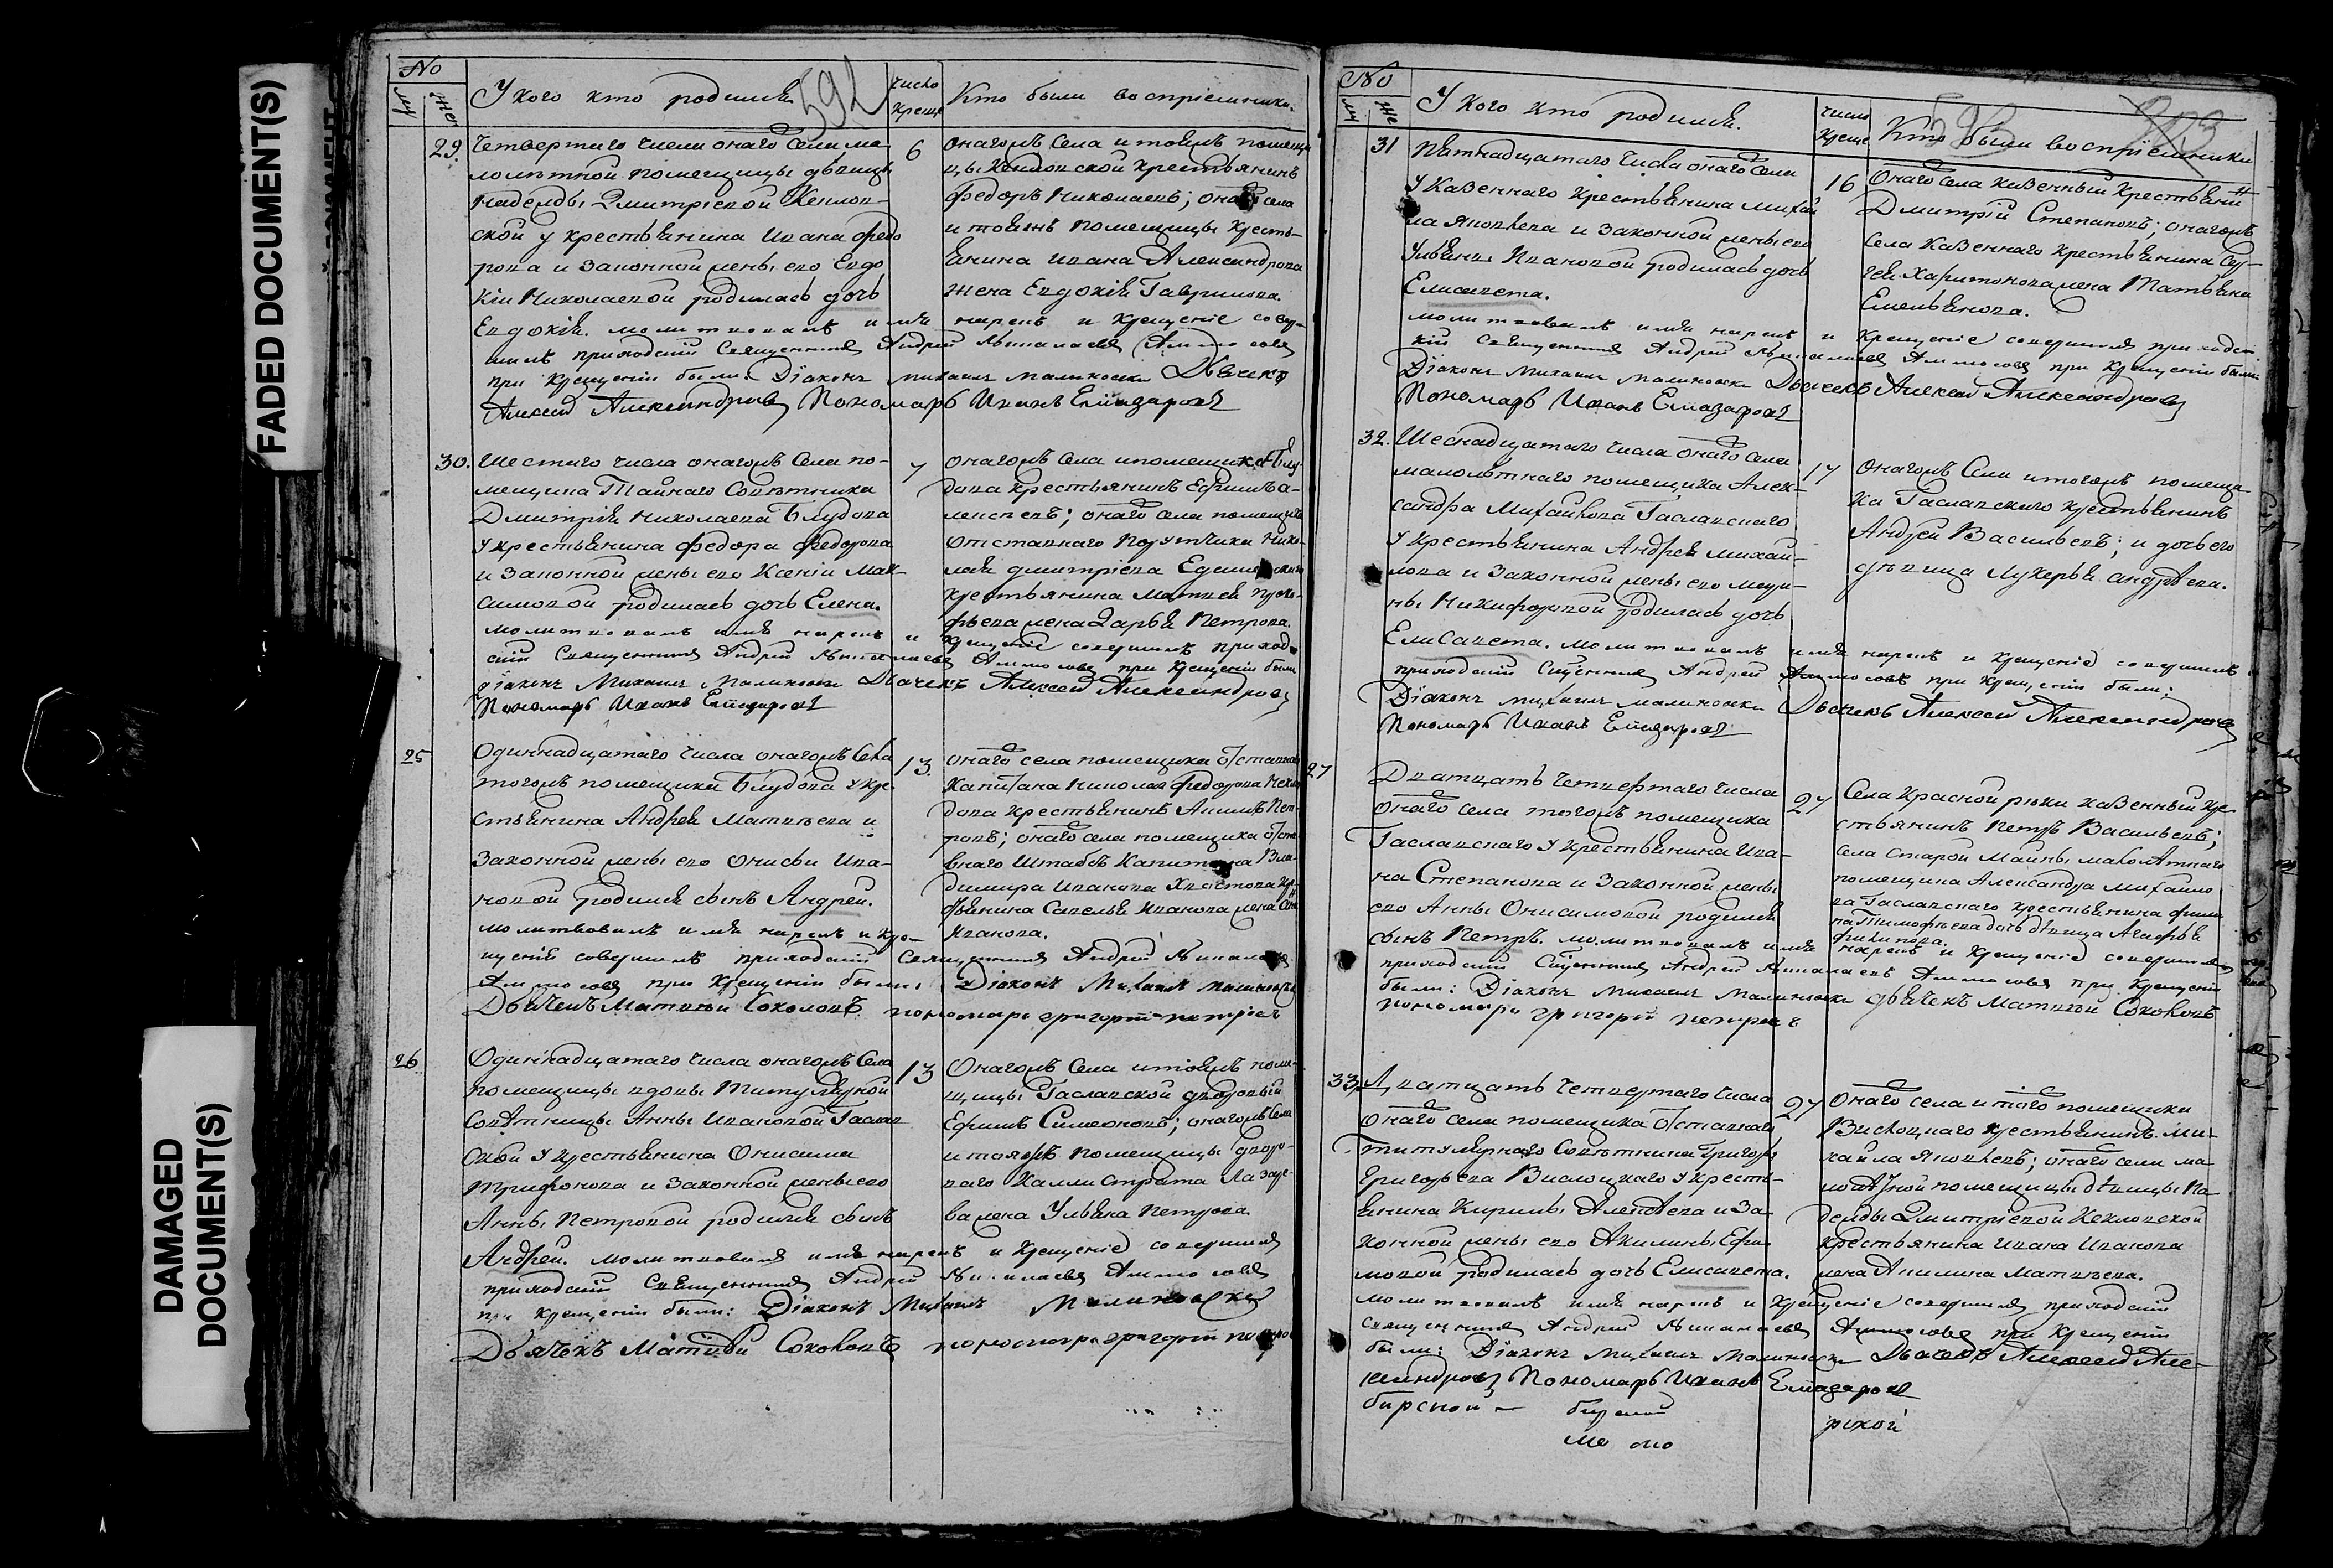 FADED DOCUMENT(S)
DAMAGED
DOCUMENT(S)
No
му
же
У кого кто родился
592
число
креще
Кто были воспріемники.
29. Четвертаго числа онаго села ма
лолѣтной помещицы дѣвицы
Надежды Дмитріевой
ской у крестьянина Ивана Федо
рова и законной жены его Евдо
кіи Николаевой родилась дочь
Евдокія. молитвовалъ имя нарекъ и крещеніе совер-
шилъ приходскій Священникъ Андрей Аммосовъ
при крещеніи были: Діаконъ Михаилъ Малиновски Дьячекъ
Алексей Александровъ Пономарь Иванъ Елиазаровъ
6
онагожъ села и тояжъ помещи
цы крестьянинъ
Федоръ Николаевъ; онаго села
и тояжъ помещицы кресть-
янина Ивана Александрова
жена Евдокія Гаврилова.
30. Шестаго числа онагожъ села по-
мещика Тайнаго Советника
Дмитрія Николаева Блудова
у крестьянина Федора Федорова
и законной жены его Ксеніи Мак-
симовой родилась дочь Елена.
молитвовалъ имя нарекъ и крещеніе совершилъ приход
скій Священникъ Андрей Аммосовъ при крещеніи были
діаконъ Михаилъ Малиновски Дьячекъ Алексей Александровъ
Пономарь Иванъ Елиазаровъ
7
онагожъ села и помещика Блу-
дова крестьянинъ Ефимъ а-
лексеевъ; онаго села помещика
отставнаго порутчика Нико-
лая дмитріева
крестьянина Матвея Проко-
фьева жена Дарья Петрова.
25
Одиннадцатаго числа онагожъ села
тогожъ помещика Блудова у кре
стьянина Андрея Матвѣева и
законной жены его Онисьи Ива-
новой родился сынъ Андрей.
молитвовалъ имя нарекъ и кре-
щеніе совершилъ приходскій Священникъ Андрей
Аммосовъ при крещеніи были: Діаконъ Михаилъ Малиновски
Дьячекъ Матвей Соколовъ пономарь григорій петровъ
13
онаго села помещика отставнаго
Капитана Николая Федорова
крестьянинъ Акимъ Пет-
ровъ; онаго села помещика отста
внаго Штабсъ Капитана Вла-
димира Иванова
Савелья Иванова жена
Иванова.
26
Одиннадцатаго числа онагожъ села
помещицы вдовы Титулярной
Советницы Анны Ивановой Гаслав
ской у крестьянина Онисима
Трифонова и законной жены его
Анны Петровой родился сынъ
Андрей. молитвовалъ имя нарекъ и крещеніе совершилъ
приходскій Священникъ Андрей Аммосовъ
при крещеніи были: Діаконъ Михаилъ Малиновски
Дьячекъ Матвей Соколовъ пономарь григорій
13
Онагожъ села и тояжъ поме-
щицы Гаславской дворовый
Ефимъ Симеоновъ; онагожъ села
и тояжъ помещицы дворо-
ваго Каллистрата Лазаре-
ва жена Ульяна Петрова
No
му
же
У кого кто родился.
число
креще
593
Кто были воспріемники
31
Пятнадцатаго числа онаго села
у казеннаго крестьянина Михаи
ла Яковлева и законной жены его
Ульяны Ивановой родилась дочь
Елисавета.
молитвовалъ имя нарекъ и крещеніе совершилъ приходс-
кій священникъ Андрей Аммосовъ при крещеніи были
Діаконъ Михаилъ Малиновски Дьячекъ Алексей Александровъ
Пономарь Иванъ Елиазаровъ
16
Онаго села казенный крестьянинъ
Дмитрій Степановъ; онагожъ
села казеннаго крестьянина Сер-
гея Харитонова жена Татьяна
Емельянова.
32. Шеснадцатаго числа онаго села
малолѣтнаго помещика Алек-
сандра Михайлова Гаславскаго
у крестьянина Андрея Михай-
лова и законной жены его
Никифоровой родилась дочь
Елисавета. молитвовалъ имя нарекъ и крещеніе совершилъ
приходскій Андрей Аммосовъ при крещеніи были:
Діаконъ михаилъ малиновски Дьячекъ Алексей Александровъ
Пономарь Иванъ Елиазаровъ
17
онагожъ села и тогожъ помещи
ка Гаславскаго крестьянинъ
Андрей Васильевъ; и дочь его
дѣвица Лукерья андрѣева.
27
Дватцать четвертаго числа
онаго села тогожъ помещика
Гаславскаго у крестьянина Ива-
на Степанова и законной жены
его Анны Онисимовой родился
сынъ Петръ. молитвовалъ имя нарекъ и крещеніе совершилъ
приходскій Андрей Аммосовъ при крещеніи
были: Діаконъ Михаилъ Малиновски дьячекъ Матвей Соколовъ
пономарь григорій петровъ
27
Села Красной реки казенный кре
стьянинъ Петръ Васильевъ;
села старой Майны малолѣтнаго
помещика Александра Михайло
ва Гаславскаго крестьянина Фили
па Тимофѣева дочь дѣвица Агафья
Филипова.
33.
Дватцать четвертаго числа
онаго села помещика отставнаго
титулярнаго Советника Григорья
Григорьева Вислоцкаго у кресть-
янина Кирилы Алексѣева и за-
конной жены его Акилины Ефи-
мовой родилась дочь Елисавета.
молитвовалъ имя нарекъ и крещеніе совершилъ приходскій
священникъ Андрей Аммосовъ при крещеніи
были: Діаконъ Михаилъ Малиновски Дьячекъ Алексей Але-
ксандровъ Пономарь Иванъ Елиазаровъ
27
онаго села и того помещика
Вислоцкаго крестьянинъ Ми-
хайла Яковлевъ; онаго села ма
лолѣтной помещицы дѣвицы На
дежды Дмитріевой
крестьянина Ивана Иванова
жена Акилина Матвѣева.
бирской —